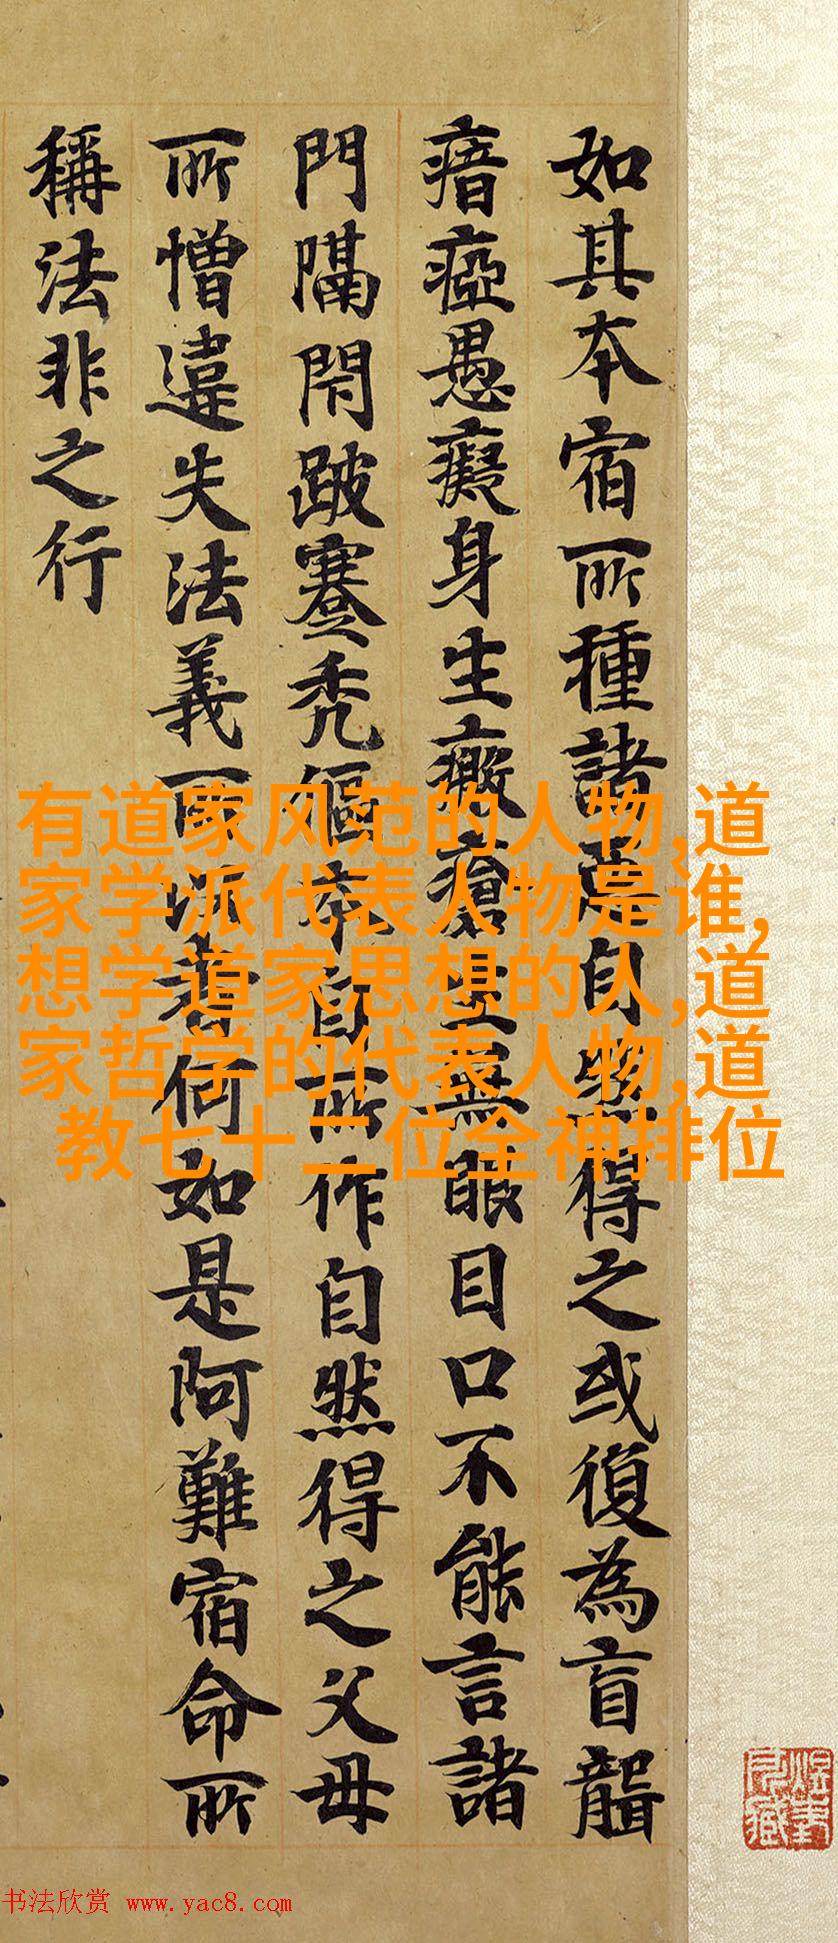 如其本宿所種諸惡自然得之或復為盲聾
瘖瘂愚癡身生癥瘡無眼目口不能言諸
門隔閇跛蹇秃傴本自所作自然得之父母
所憎違失法義所以者何如是阿難宿命所
稱法非之行
有道家风范的人物,道
家学派代表人物是谁,
想学道家思想的人,道
家哲学的代表人物,道
教七十二位全神排位
书法欣赏 www.yac8.com